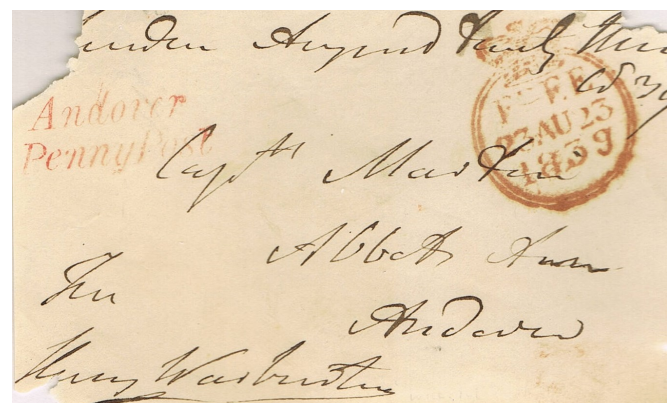 London August Twenty Three
Andover
Penny Post
FREE
23 AU 23
1839
Captn Martin
Abbotts Ann
Andover
Free
Henry Warburton